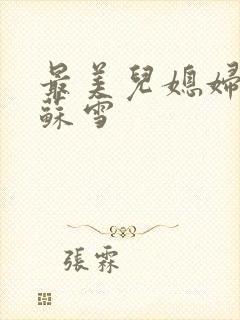 最美兒媳婦
蘇雪
張霖